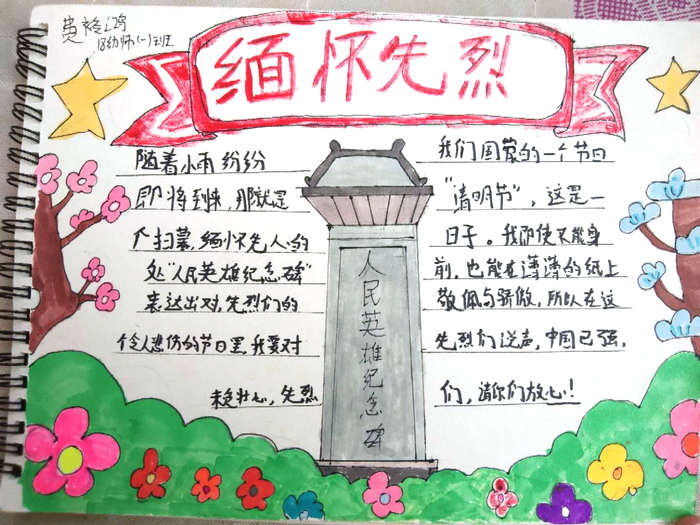 18幼师(一)班
缅怀先烈
随着小雨纷纷 我们国家的一个节日
即将到来,那就是 “清明节”,这是一
个扫墓,缅怀先人的 日子。我即使不能身
处“人民英雄纪念碑” 前,也能在薄薄的纸上
表达出对先烈们的 敬佩与骄傲,所以在这
个令人悲伤的节日里,我要对 先烈们说声,中国已强,
未变壮心,先烈 们,请你们放心!
人民英雄纪念碑